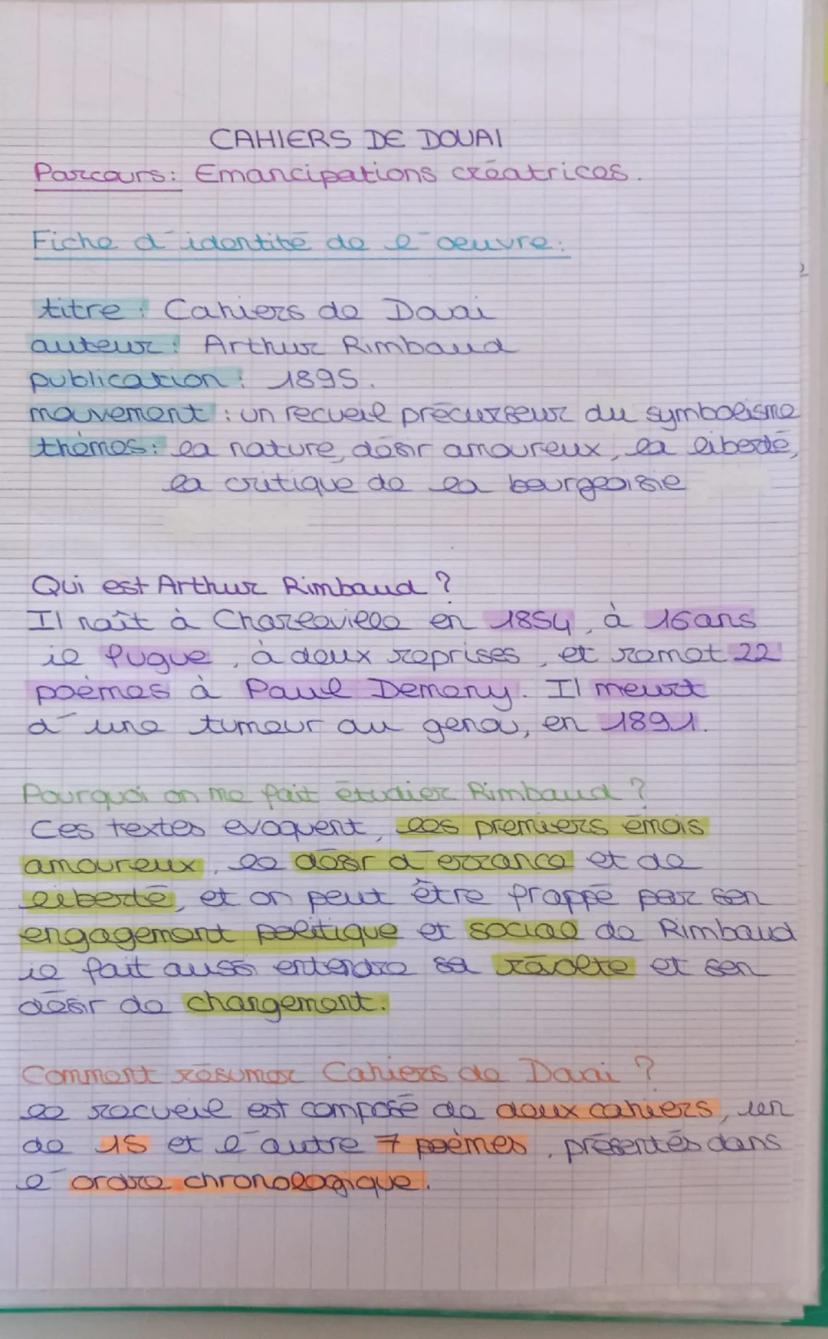 CAHIERS DE DOUAI
Parcours: Emancipations créatrices.
Fiche d'identité de l'oeuvre:
titre: Cahiers de Douai
auteur: Arthur Rimbaud
publication: 1895.
mouvement: un recueil précurseur du symbolisme
thèmes: la nature, désir amoureux, la liberté,
la critique de la bourgeoisie
Qui est Arthur Rimbaud ?
Il naît à Charleville en 1854, à 16 ans
il fugue, à deux reprises, et remet 22
poèmes à Paul Demeny. Il meurt
d'une tumeur au genou, en 1891.
Pourquoi on me fait étudier Rimbaud ?
Ces textes evoquent, les premiers émois
amoureux, le désir d'errance et de
liberté, et on peut être frappé par son
engagement politique et social de Rimbaud
il fait aussi entendre sa révolte et son
désir de changement.
Comment résumer Cahiers de Douai ?
le recueil est composé de deux cahiers, un
de 15 et l'autre 7 poèmes, présentés dans
l'ordre chronologique.